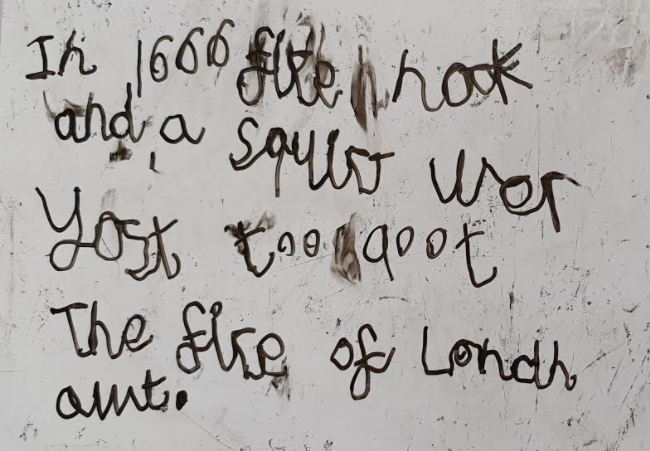 In 1666 fire hook
and a squirt wer
Yost too qoot
The fire of Londn
awt.